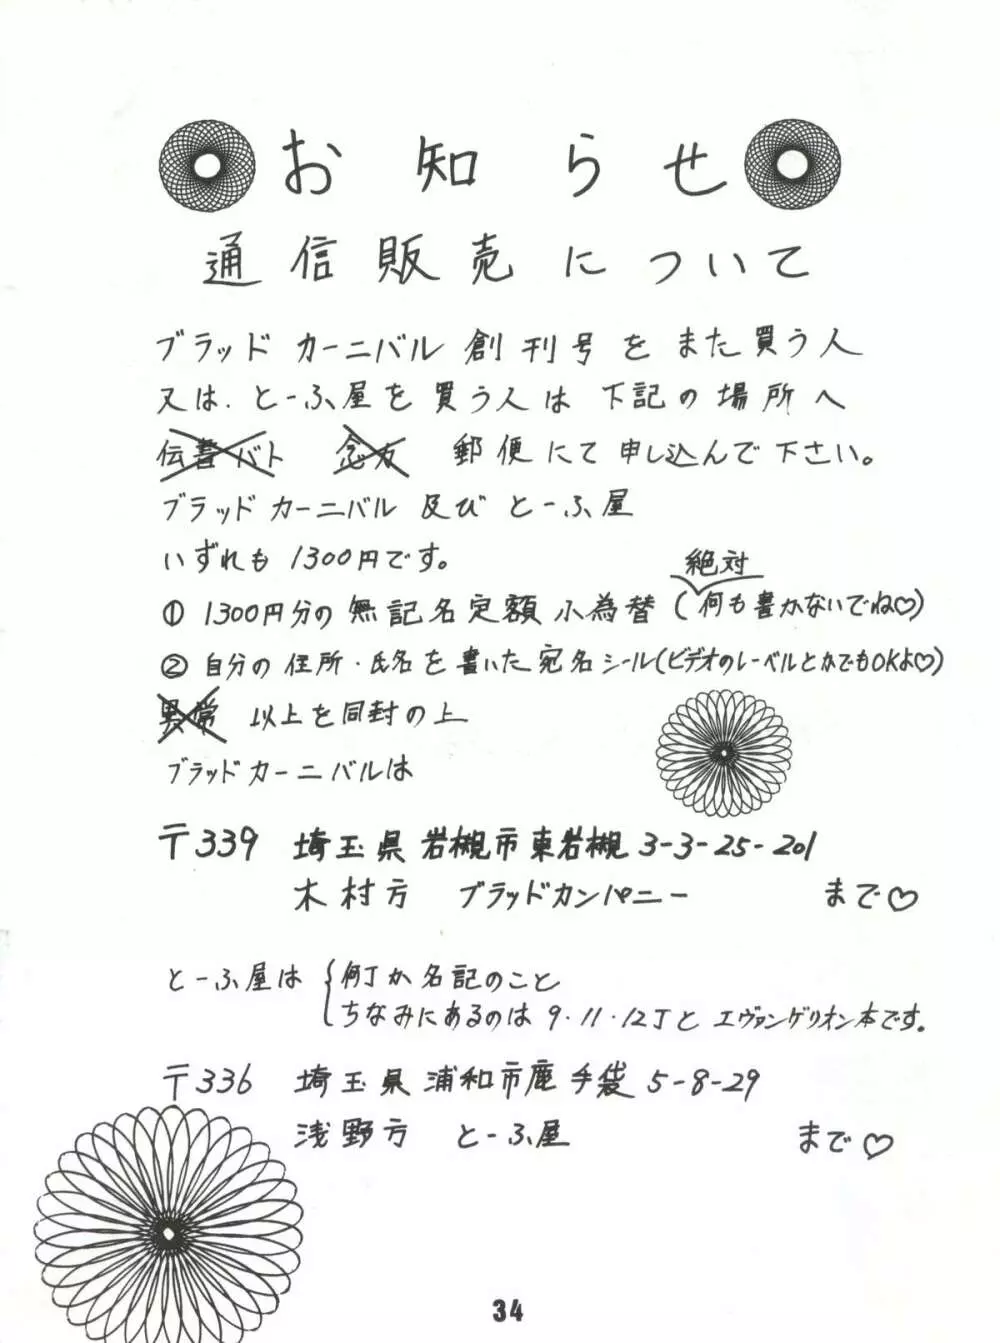 お知らせ
通信販売について
ブラッドカーニバル創刊号をまた買う人
又は、とーふ屋を買う人は下記の場所へ
伝書バト 念力 郵便にて申し込んで下さい。
ブラッドカーニバル及びとーふ屋
いずれも1300円です。
絶対
① 1300円分の無記名定額小為替(何も書かないでね♡)
② 自分の住所・氏名を書いた宛名シール(ビデオのレーベルとかでもOKよ♡)
異常 以上を同封の上
ブラッドカーニバルは
〒339 埼玉県岩槻市東岩槻3-3-25-201
木村方 ブラッドカンパニー まで♡
とーふ屋は{何Jか名記のこと
ちなみにあるのは9・11・12Jとエヴァンゲリオン本です。
〒336 埼玉県浦和市鹿手袋5-8-29
浅野方 とーふ屋 まで♡
34